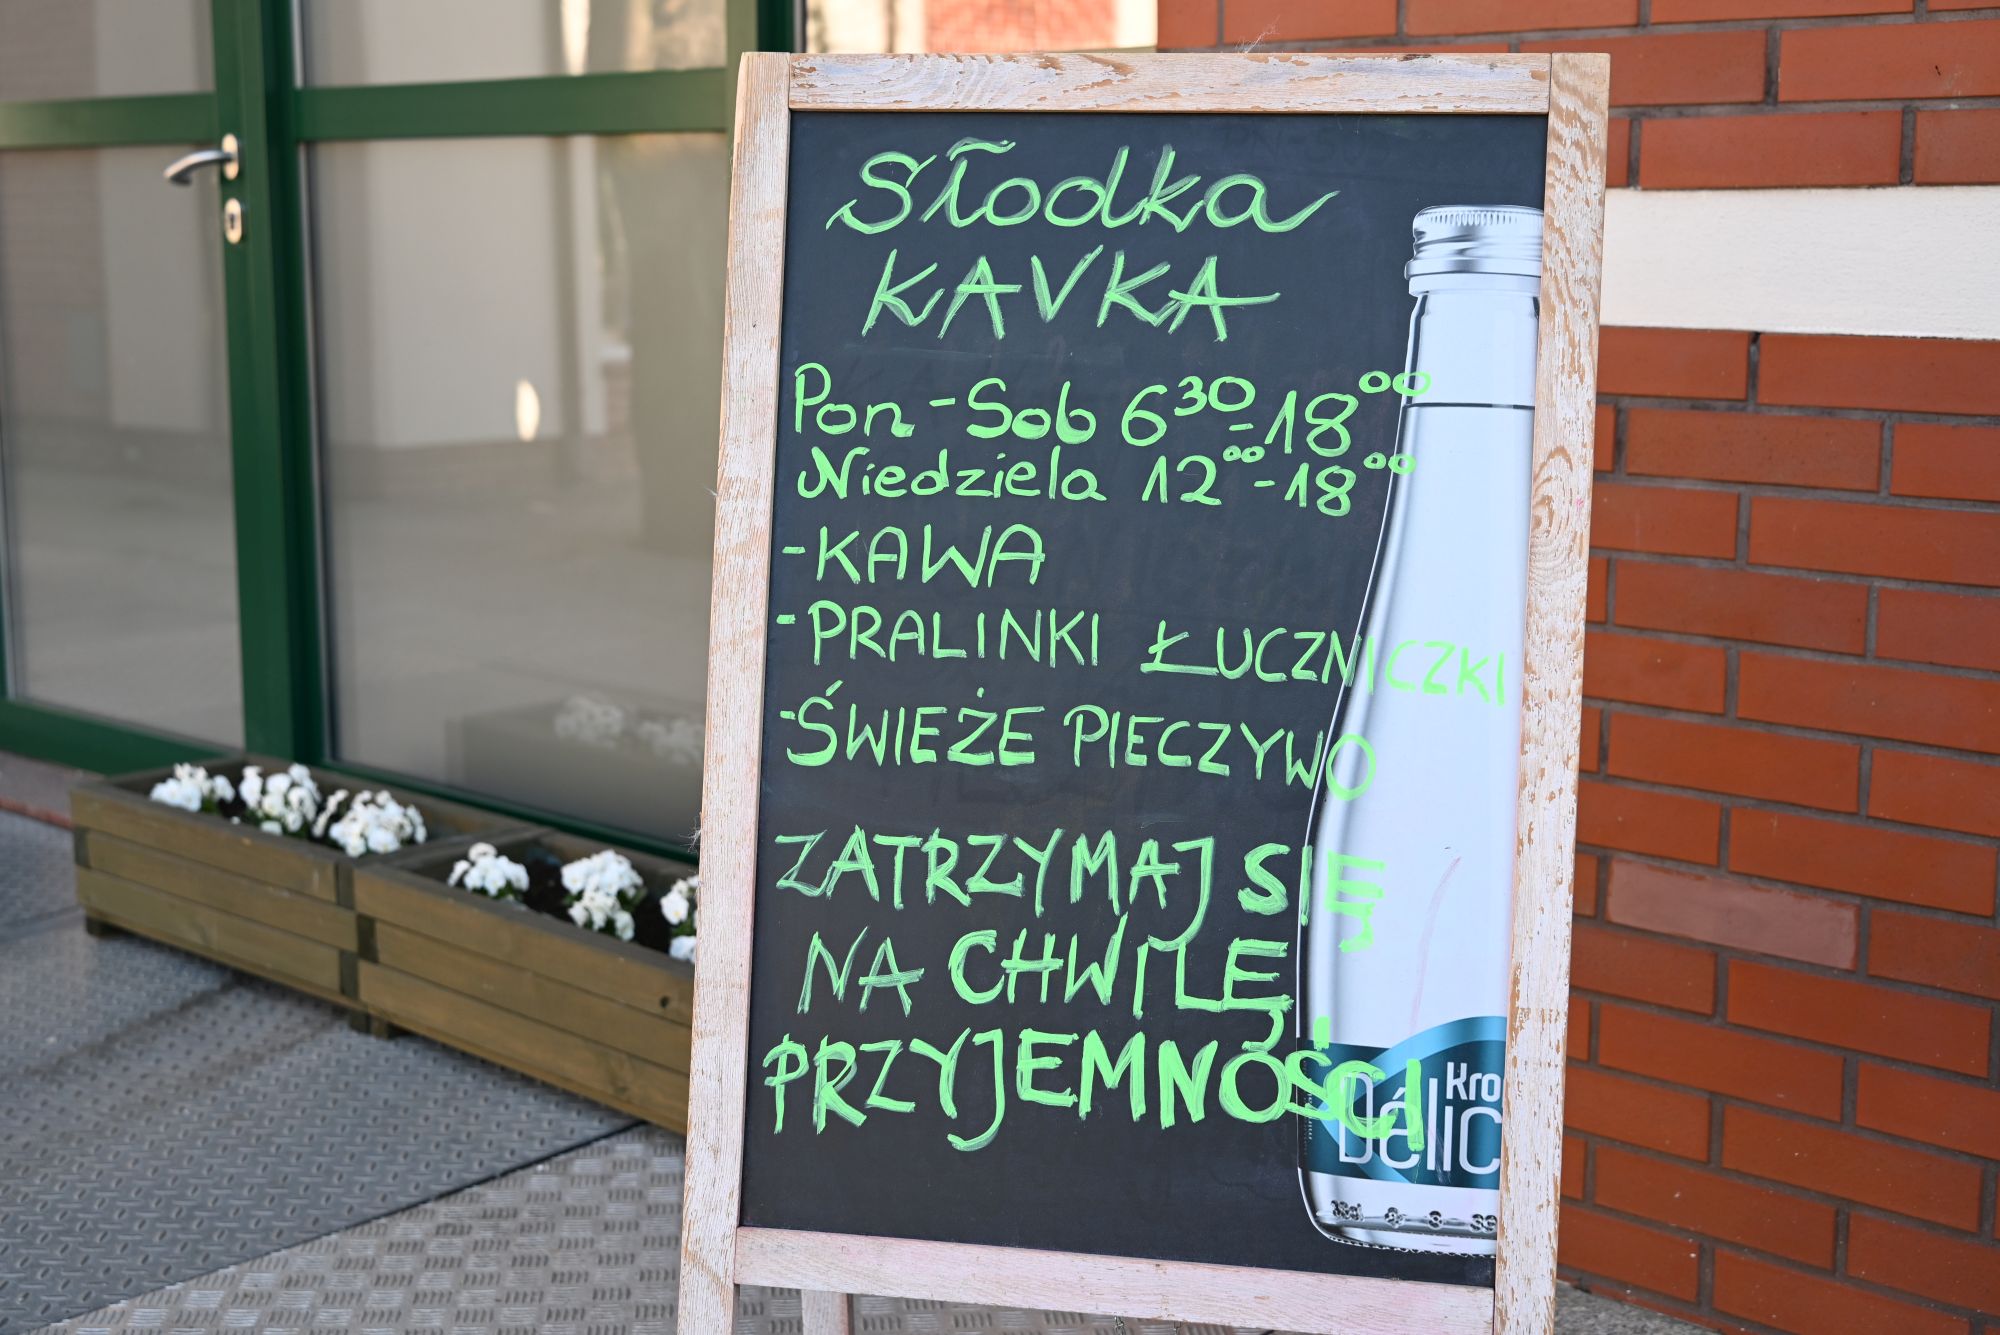 Słodka
KAVKA
Pon-Sob 6³⁰-18⁰⁰
Niedziela 12⁰⁰-18⁰⁰
-KAWA
-PRALINKI ŁUCZNICZKI
-ŚWIEŻE PIECZYWO
ZATRZYMAJ SIĘ
NA CHWILĘ
PRZYJEMNOŚCI
Kro
Délic